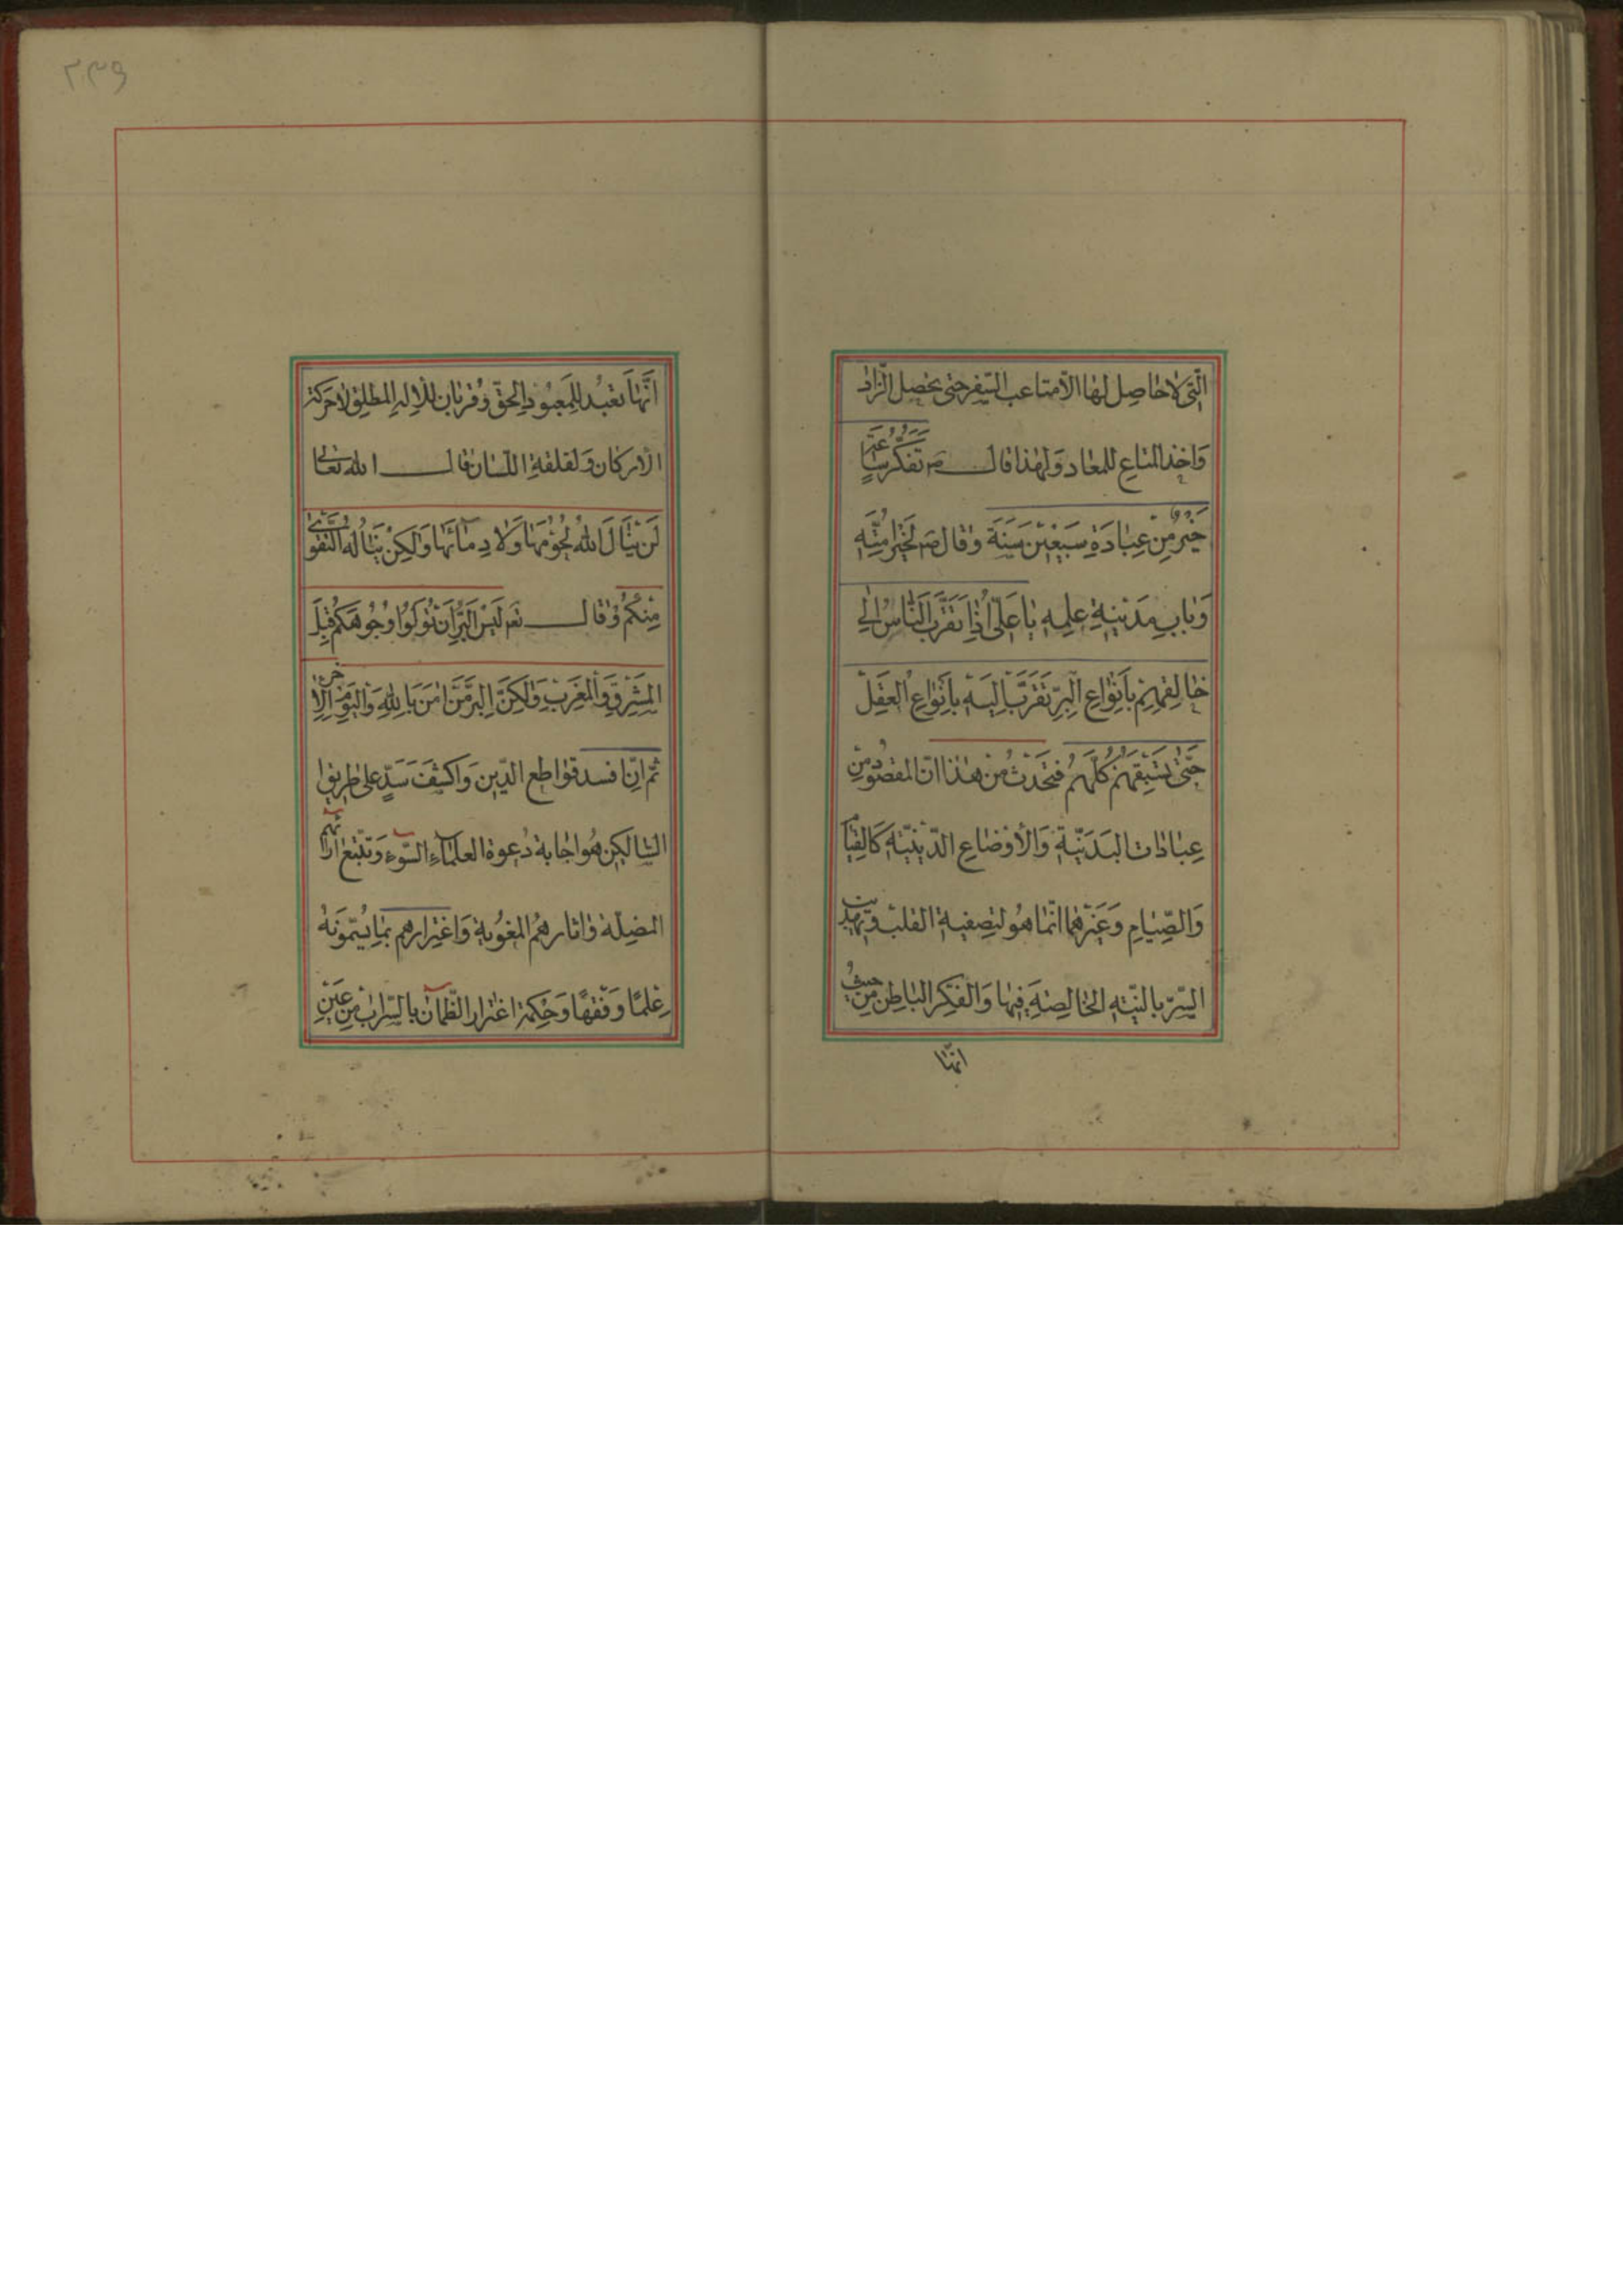 الَّتی لا حاصِل لَها الّا متاعب السّفر حتی یحصل الزّاد
وَاخذ المتاعِ للمعاد وَلهٰذا قال ص تَفَکُّرُ ساعَةٍ
خَیْرٌ مِنْ عِبادَةِ سَبْعینَ سَنَة وَقال ص لخَیر امَّتِهِ
وَبابِ مَدینةِ علمِهِ یا عَلیّ اِذا تَقَرَّبَ النّاسُ اِلی
خالِقِهِمْ بِاَنْواعِ الْبِرِّ تَقَرَّبْ اِلَیْهِ بِاَنْواعِ الْعَقْلْ
حَتّی تَسْبِقَهُمْ کُلَّهُمْ فتحدّث مِنْ هٰذا انّ المقصُود مِنِ
عِباداتِ البَدَنیّةِ وَالأوْضاعِ الدّینیّةِ کَالقِیام
وَالصّیامِ وَغَیْرهما انّما هُو لتصفیةِ القلبْ وَتهذیب
السِّرّ بالنّیّةِ الخالِصَةِ فِیها وَالفکر الباطِن مِنْ حیث
انّها
اَنّها تعَبُّد لِلمَعبُودِ الحَقّ وَقُربان للاِلهِ المطلِق لا حَرکة
الأرکان وَلقلقةِ اللسان قال الله تعالی
لَنْ یَنالَ اللهَ لُحُومُها وَلا دِمائُها وَلکِنْ یَنالُهُ التَّقْوی
مِنْکُمْ وَقال تعم لَیْسَ الْبِرَّ اَنْ تُوَلُّوا وُجُوهَکُمْ قِبَلَ
المَشْرِقِ وَالْمَغْرِبِ وَلکِنَّ الْبِرَّ مَنْ امَنَ بِاللهِ وَالْیَوْمِ الاخر
ثمّ انّ افسد قواطع الدّین وَاکشَفَ سَدٍّ علی طریق
السّالکین هُو اجابة دَعوة العلمآءِ السّوءِ وَتتبّع ارائهم
المضلّة واثارهُم المغوُیةِ وَاغترارهم بما یُسمّونَهُ
عِلمًا وَفقهًا وَحِکمة اغترار الظّمآن بالسّراب مِنْ عَیْنِ
۲۳۹